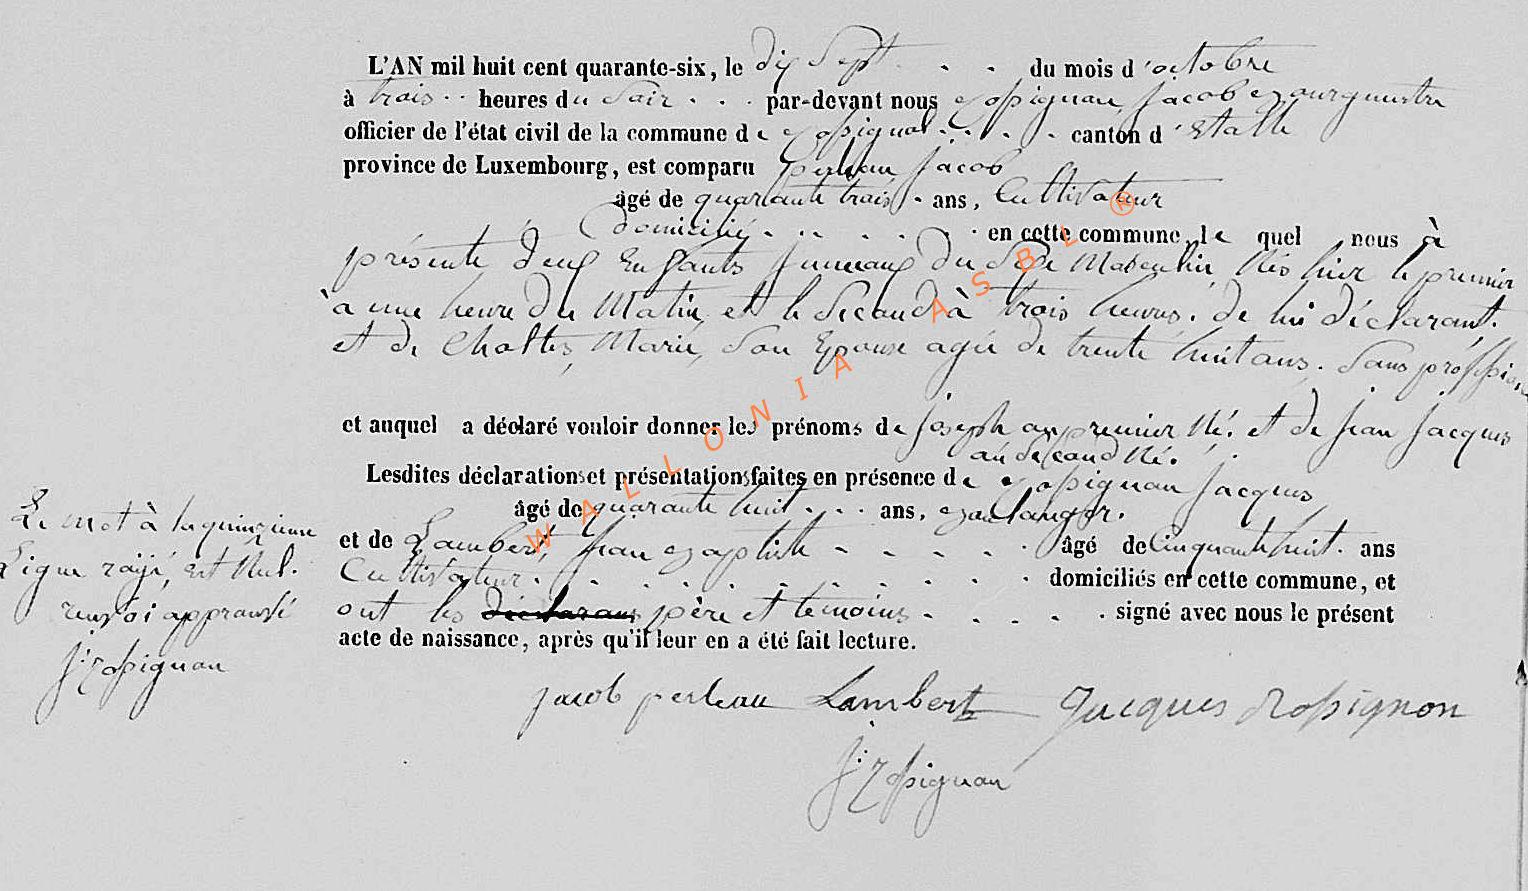 L'AN mil huit cent quarante-six, le dix Sept . . du mois d'octobre
à trois . . heures du Soir . . . par-devant nous Rossignon Jacob Bourgmestre
officier de l'état civil de la commune de Rossignol . . . . canton d'Etalle
province de Luxembourg, est comparu Perleau Jacob
âgé de quarante trois . ans, Cultivateur
Domicilié . . . . . . . en cette commune, le quel nous à
présenté deux Enfants Jumeaux du Sexe Masculin, Nés hier le premier
à une heure du Matin, et le Second à trois heures. de lui déclarant.
et de Marie, Son Epouse agée de trente huit ans. Sans profession
et auquel a déclaré vouloir donner les prénoms de Joseph au premier Né. et de Jean Jacques
au Second Né.
Lesdites déclarations et présentations faites en présence de Rossignon Jacques
âgé de quarante huit . . . ans, Boulanger.
et de Lambert, Jean Baptiste - - - - - . âgé de Cinquante huit . ans
Cultivateur . . . . . . . . . . domiciliés en cette commune, et
ont les déclarans père et témoins - . . . . signé avec nous le présent
acte de naissance, après qu'il leur en a été fait lecture.
Le mot à la quinzième
Ligne rayé, est Nul.
renvoi approuvé
J: Rossignon
jacob perleau Lambert Jacques Rossignon
J: Rossignon
WALLONIA ASBL ®